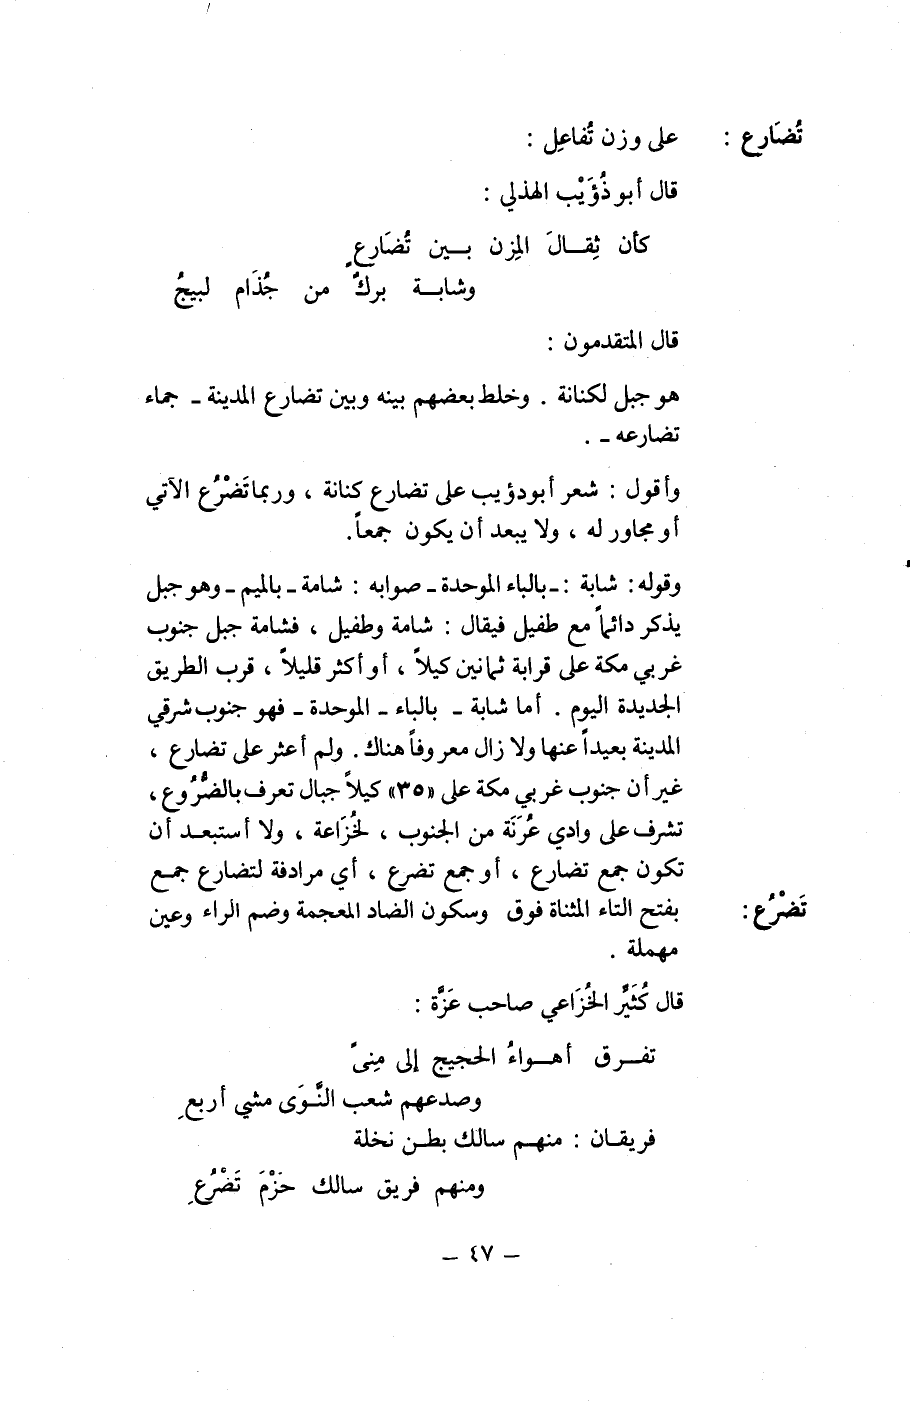 تُضَارع : على وزن تُفاعِل :
قال أبو ذُؤَيْب الهذلي :
كأن ثِقـالَ المزن بـين تُضَارعٍ
وشابـة بركٌ من جُذَام لبيجُ
قال المتقدمون :
هو جبل لكنانة . وخلط بعضهم بينه وبين تضارع المدينة ـ جماء
تضارعه ـ .
وأقول : شعر أبودؤيب على تضارع كنانة ، وربما تَضْرُع الآتي
أو مجاور له ، ولا يبعد أن يكون جمعاً.
وقوله: شابة :ـ بالباء الموحدة ـ صوابه : شامة ـ بالميم ـ وهو جبل
يذكر دائماً مع طفيل فيقال : شامة وطفيل ، فشامة جبل جنوب
غربي مكة على قرابة ثمانين كيلاً ، أو أكثر قليلاً ، قرب الطريق
الجديدة اليوم . أما شابة ـ بالباء ـ الموحدة ـ فهو جنوب شرقي
المدينة بعيداً عنها ولا زال معروفاً هناك. ولم أعثر على تضارع ،
غير أن جنوب غربي مكة على «٣٥» كيلاً جبال تعرف بالضُّرُوع ،
تشرف على وادي عُرَنَة من الجنوب ، لخُزَاعة ، ولا أستبعـد أن
تكون جمع تضارع ، أو جمع تضرع ، أي مرادفة لتضارع جمـع
تَضْرُع : بفتح التاء المثناة فوق وسكون الضاد المعجمة وضم الراء وعين
مهملة .
قال كُثَيِّر الخُزَاعي صاحب عَزَّة :
تفـرق أهـواءُ الحجيج إلى مِنىً
وصدعهم شعب النَّوَى مشي أربعِ
فريقـان : منهـم سالك بطـن نخلة
ومنهم فريق سالك حَزْمَ تَضْرُعِ
– ٤٧ –